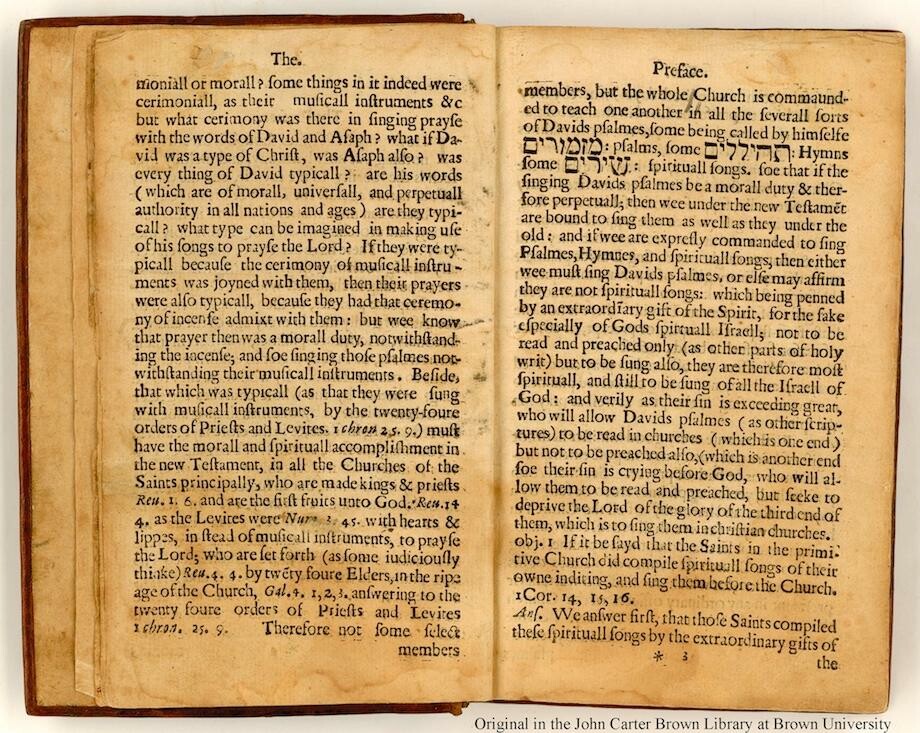 The.
moniall or morall? ſome things in it indeed were
cerimoniall, as their muſicall inſtruments &c
but what cerimony was there in ſinging prayſe
with the words of David and Aſaph? what if Da-
vid was a type of Chriſt, was Aſaph alſo? was
every thing of David typicall? are his words
(which are of morall, univerſall, and perpetuall
authority in all nations and ages) are they typi-
call? what type can be imagined in making uſe
of his ſongs to prayſe the Lord? If they were ty-
picall becauſe the cerimony of muſicall inſtru-
ments was joyned with them, then their prayers
were alſo typicall, becauſe they had that ceremo-
ny of incenſe admixt with them: but wee know
that prayer then was a morall duty, notwithſtand-
ing the incenſe; and ſoe ſinging thoſe pſalmes not-
withſtanding their muſicall inſtruments. Beſide,
that which was typicall (as that they were ſung
with muſicall inſtruments, by the twenty-foure
orders of Prieſts and Levites. 1 chron 25. 9.) muſt
have the morall and ſpirituall accompliſhment in
the new Teſtament, in all the Churches of the
Saints principally, who are made kings & prieſts
Reu. 1. 6. and are the firſt fruits unto God. Reu. 14
4. as the Levites were Num. 3. 45. with hearts &
lippes, in ſtead of muſicall inſtruments, to prayſe
the Lord; who are ſet forth (as ſome iudiciouſly
thinke) Reu. 4. 4. by twẽty foure Elders, in the ripe
age of the Church, Gal. 4. 1,2,3. anſwering to the
twenty foure orders of Prieſts and Levites
1 chron. 25. 9. Therefore not ſome ſelect
members
Preface.
members, but the whole Church is commaund-
ed to teach one another in all the ſeverall ſorts
of Davids pſalmes, ſome being called by himſelfe
מזמורים: pſalms, ſome תהיללים: Hymns
ſome שירים: ſpirituall ſongs. ſoe that if the
ſinging Davids pſalmes be a morall duty & ther-
fore perpetuall; then wee under the new Teſtamẽt
are bound to ſing them as well as they under the
old: and if wee are expreſly commanded to ſing
Pſalmes, Hymnes, and ſpirituall ſongs, then either
wee muſt ſing Davids pſalmes, or elſe may affirm
they are not ſpirituall ſongs: which being penned
by an extraordiary gift of the Spirit, for the ſake
eſpecially of Gods ſpirtuall Iſraell; not to be
read and preached only (as other parts of holy
writ) but to be ſung alſo, they are therefore moſt
ſpirituall, and ſtill to be ſung of all the Iſraell of
God: and verily as their ſin is exceeding great,
who will allow Davids pſalmes (as other ſcrip-
tures) to be read in churches (which is one end)
but not to be preached alſo, (which is another end
ſoe their ſin is crying before God, who will al-
low them to be read and preached, but ſeeke to
deprive the Lord of the glory of the third end of
them, which is to ſing them in chriſtian churches.
obj. 1 If it be ſayd that the Saints in the primi-
tive Church did compile ſpirituall ſongs of their
owne inditing, and ſing them before the Church.
1Cor. 14, 15, 16.
Anſ. We anſwer firſt, that thoſe Saints compiled
theſe ſpirituall ſongs by the extraordinary gifts of
* 3 the
Original in the John Carter Brown Library at Brown University